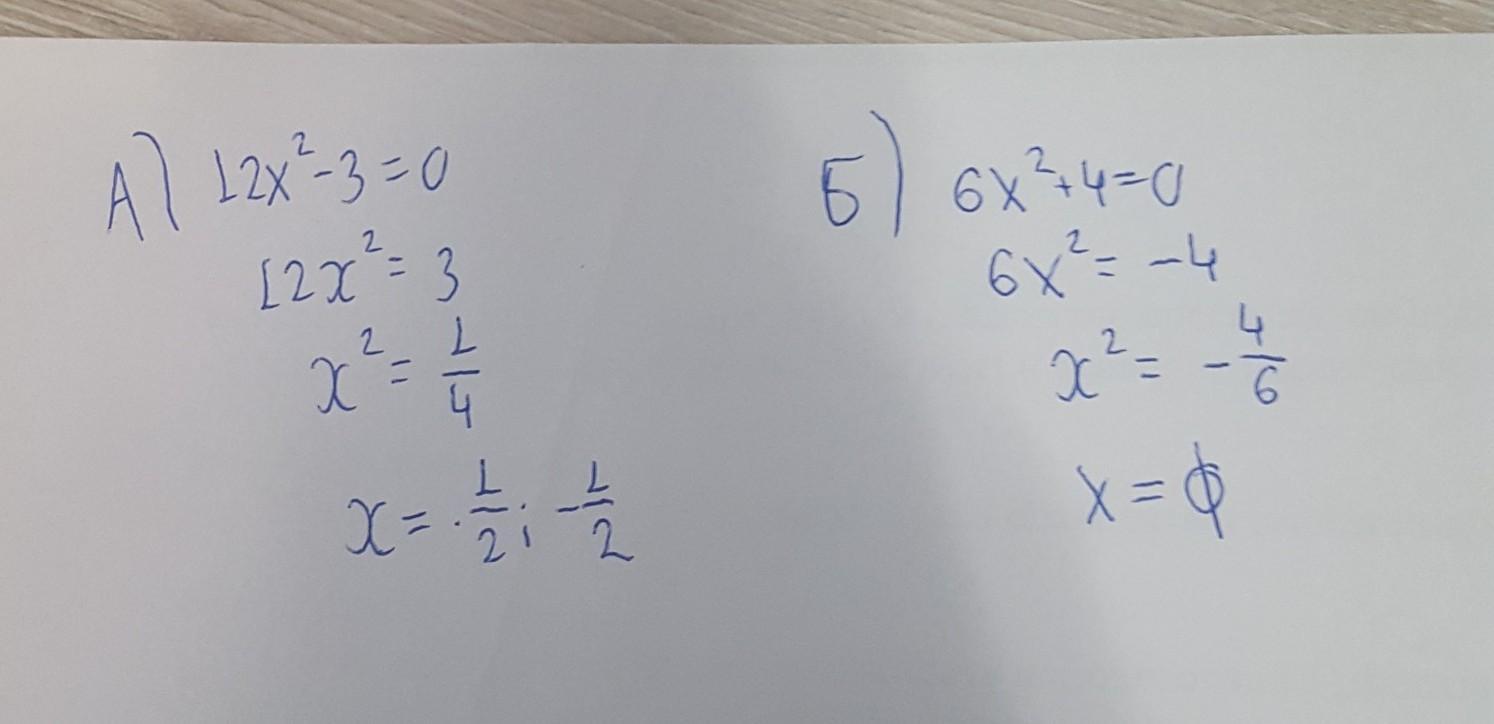 А) 12x²-3=0
12x²=3
x²=1/4
x=1/2; -1/2
Б) 6x²+4=0
6x²=-4
x²=-4/6
x=∅